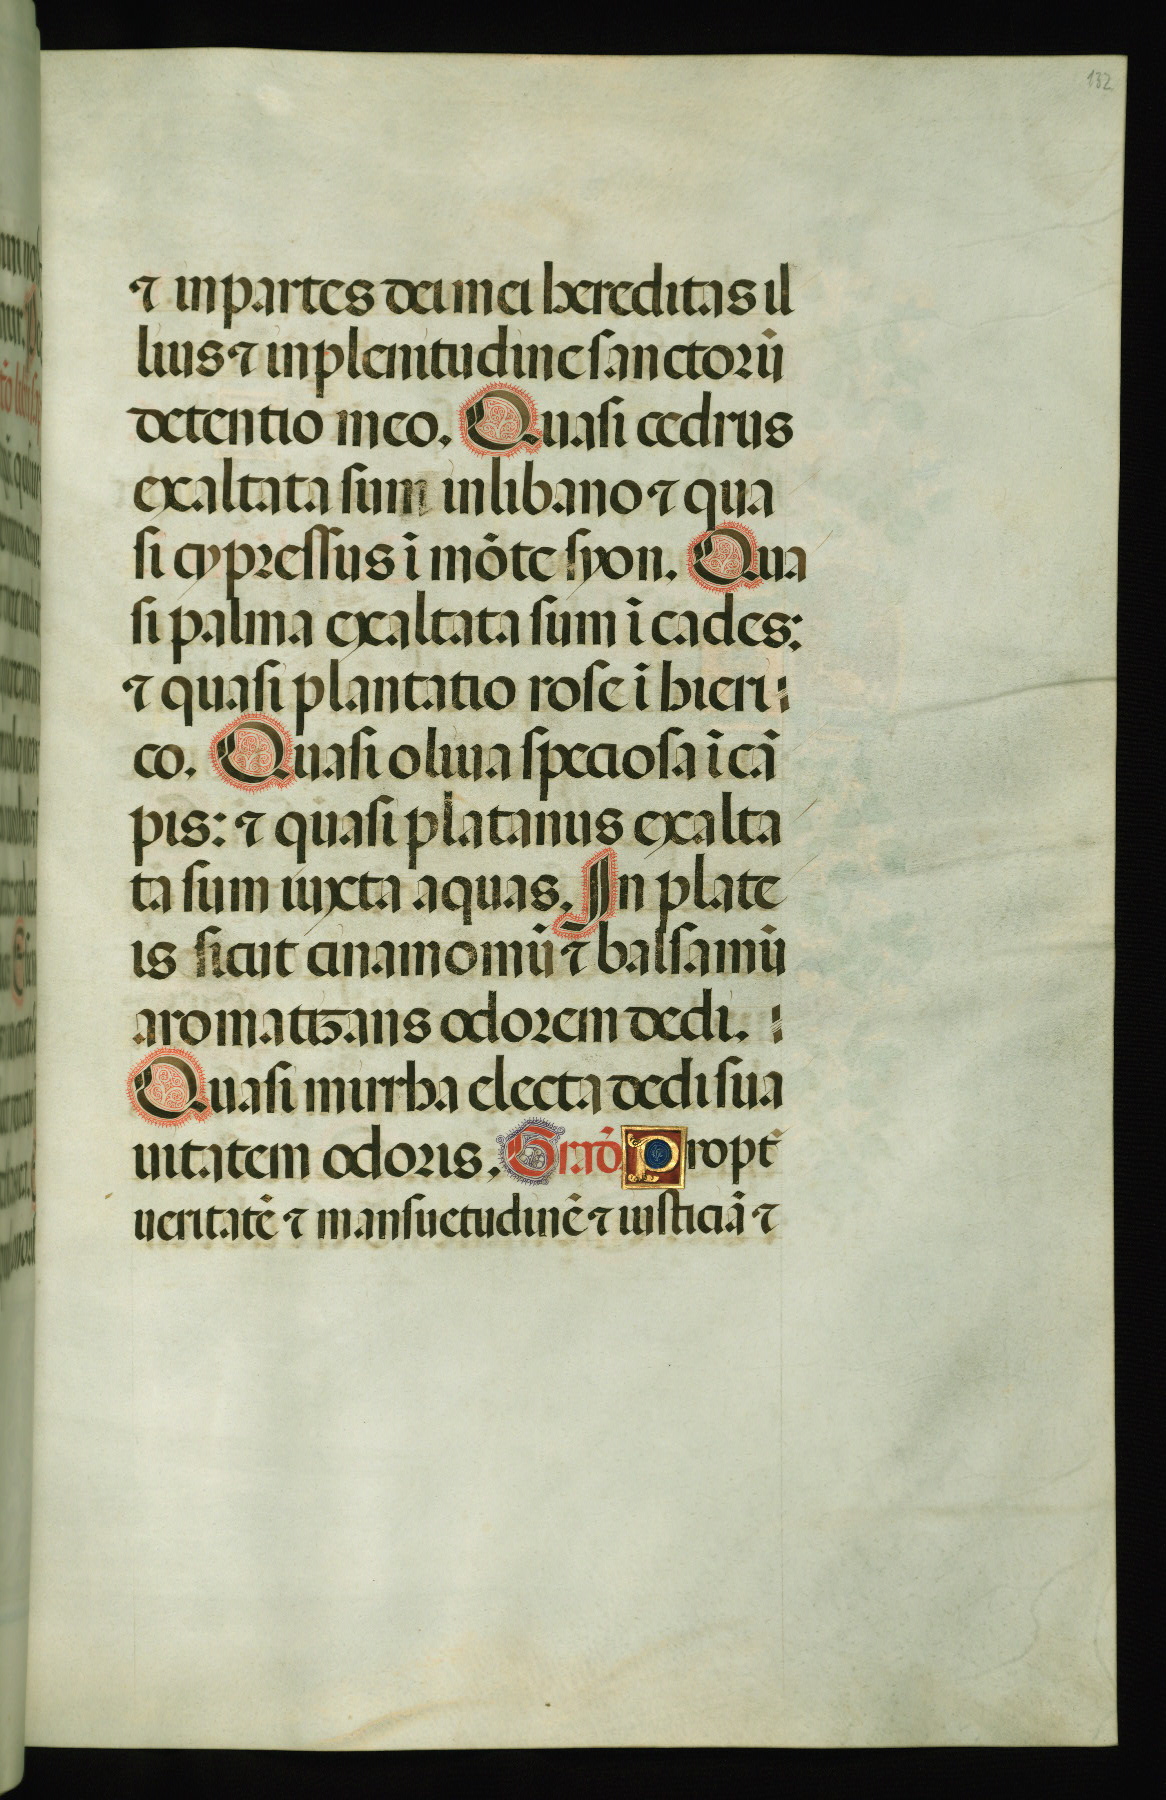 132
⁊ in partes dei mei hereditas il
lius ⁊ in plenitudine sanctorū
detentio meo. Quasi cedrus
exaltata sum in libano ⁊ qua
si cypressus ī mōte syon. Qua
si palma exaltata sum ī cades:
⁊ quasi plantatio rose ī hieri
co. Quasi oliua speciosa ī cā
pis: ⁊ quasi platanus exalta
ta sum iuxta aquas. In plate
is sicut cinamomū ⁊ balsamū
aromatizans odorem dedi.
Quasi mirrha electa dedi sua
uitatem odoris. Graḋ. Propt̄
ueritatē ⁊ mansuetudinē ⁊ iusticiā ⁊